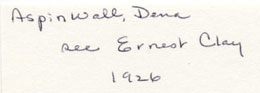 Aspinwall, Dena
see Ernest Clay
1926